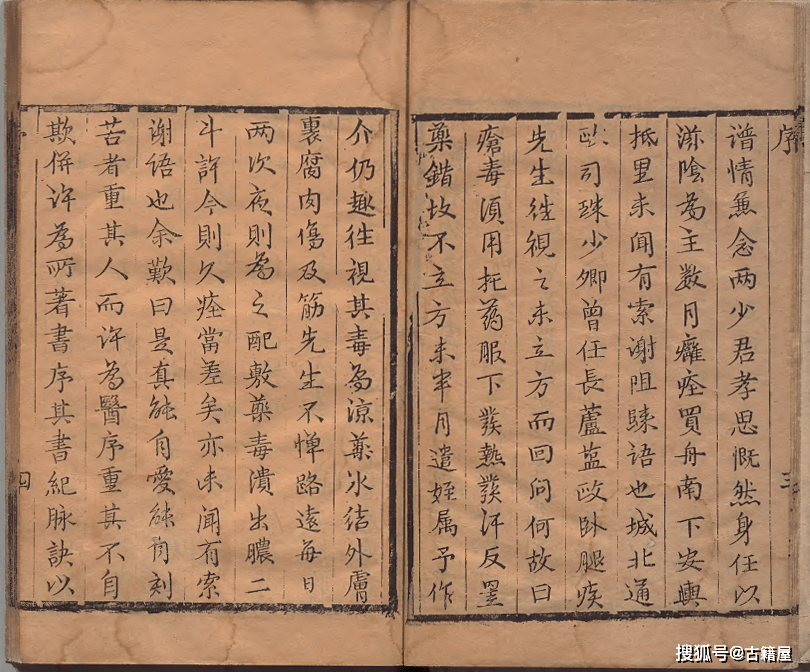 序
谱情兼念两少君孝思慨然身任以
滋陰為主数月癰痊買舟南下安輿
抵里未闻有索谢阻賕语也城北通
政司珠少卿曾任長蘆蓝政卧腿疾
先生往视之未立方而回问何故曰
瘡毒須用托药服下發熱發汗反
藥錯故不立方未半月遣姪属予作
三
介仍趣往视其毒為涼藥氷结外膚
裏腐肉傷及筋先生不惮路遠每日
两次夜則為之配敷藥毒潰出膿二
斗許今則久痊當差矣亦未闻有索
谢语也余歎曰是真能自愛能自刻
苦者重其人而许為醫序重其不自
欺併许為所著書序其書紀脉訣以
四
搜狐号@古籍屋